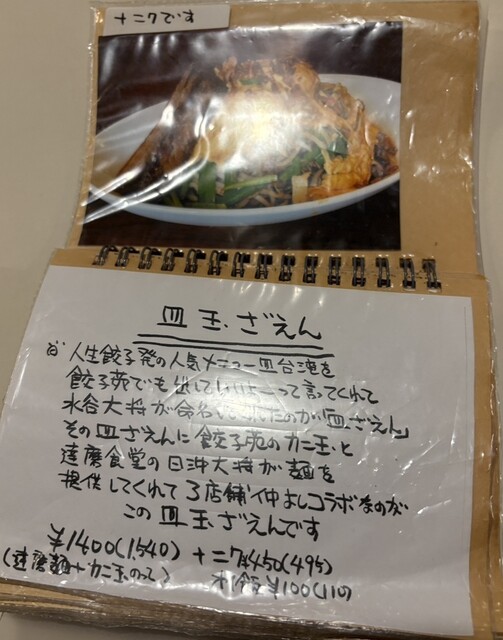 +ニクです
皿玉ざえん
人生餃子発の人気メニュー皿台湾を
餃子苑でも出してって言ってくれて
水谷大将が命名してくれたのが「皿ざえん」
その皿ざえんに餃子苑のカニ玉と
達磨食堂の日沖大将が麺を
提供してくれて3店舗仲よしコラボなのが
この皿玉ざえんです
¥1400(1540) +ニク¥450(495)
(達磨麺+カニ玉のって) ¥100(110)